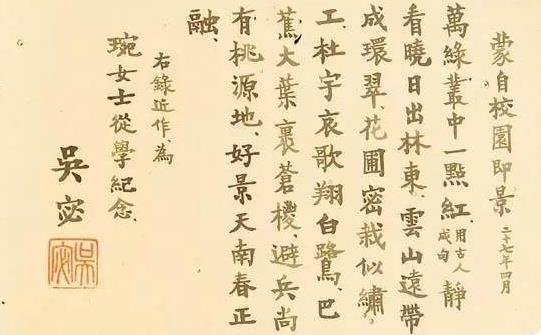 蒙自校園即景 二十七年四月
萬綠叢中一點紅、用古人成句 靜
看曉日出林東、雲山遠帶
成環翠、花圃密栽似繡
工、杜宇哀歌翔白鷺、巴
蕉大葉裹蒼椶、避兵尚
有桃源地、好景天南春正
融、
右錄近作、為
琬女士從學紀念、
吳宓
吳宓